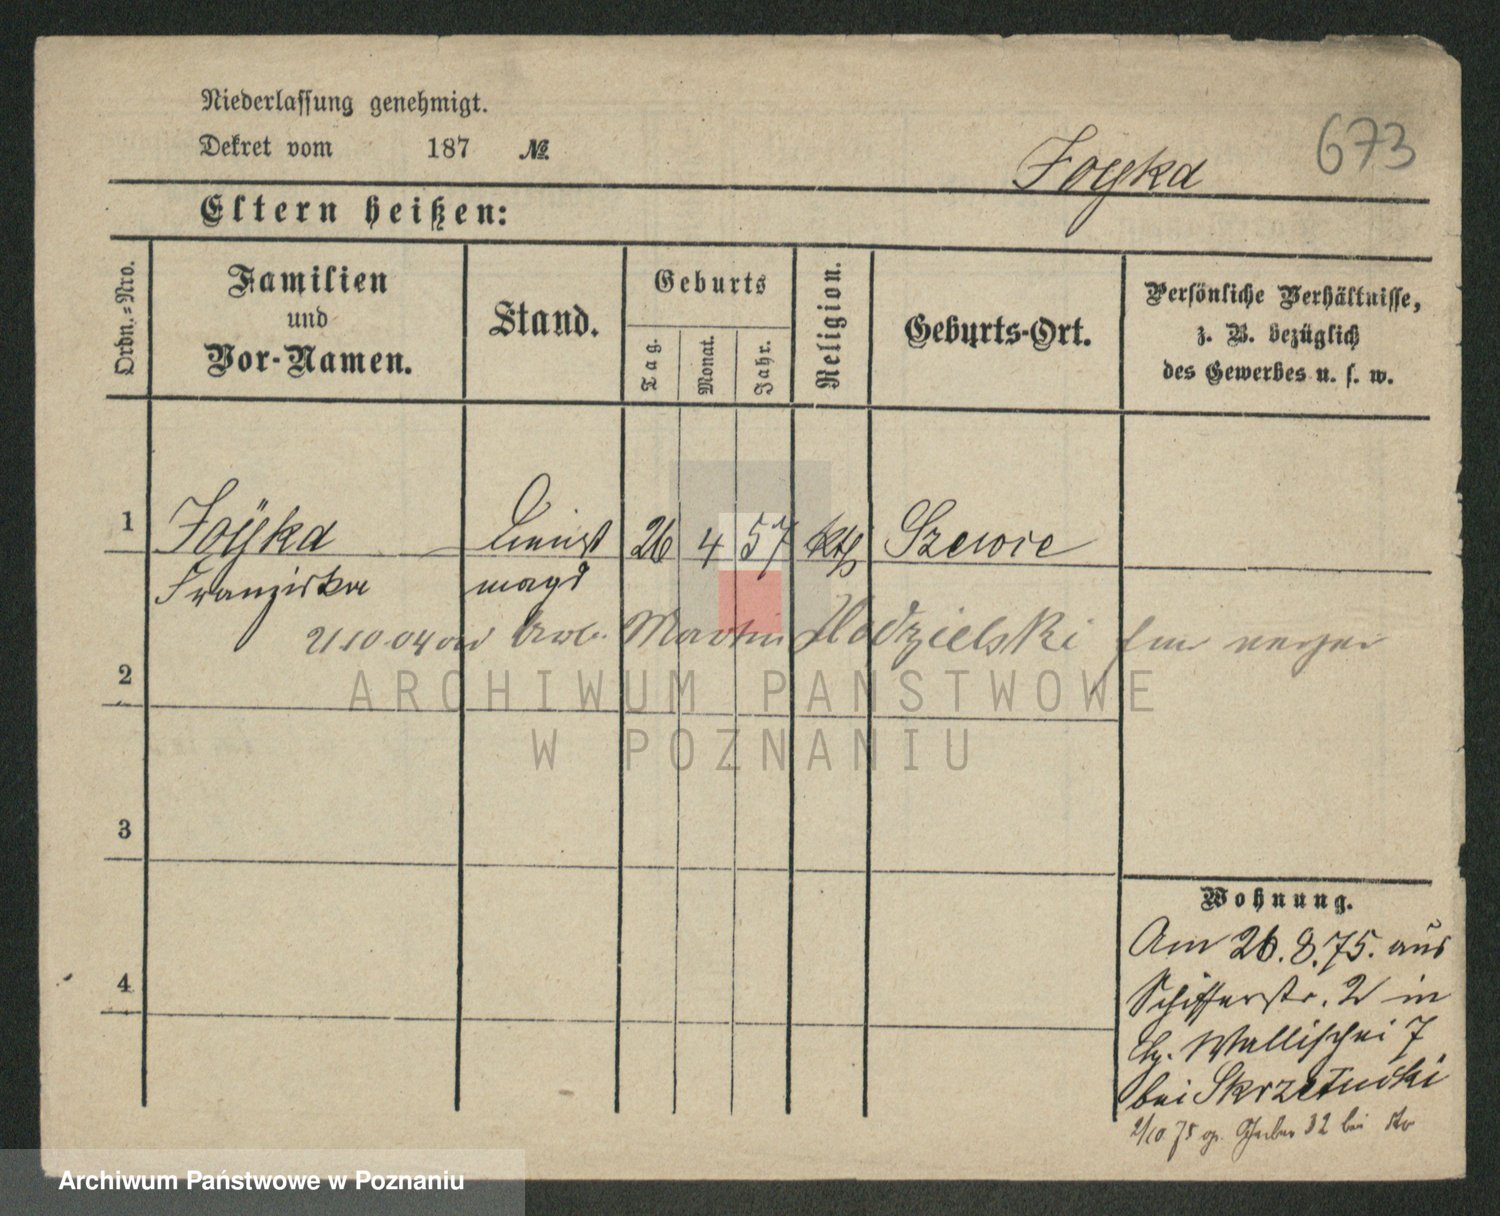 Niederlassung genehmigt.
Dekret vom 187 №
Foÿka
673
Eltern heißen:
Ordn.=Nro.
Familien
und
Vor-Namen.
Stand.
Geburts
Tag.
Monat.
Jahr.
Religion.
Geburts-Ort.
Persönliche Verhältnisse,
z. B. bezüglich
des Gewerbes u. s. w.
1 Foÿka Dienst 26 4 57 kth Szewce
Franziska magd
Martin
2
ARCHIWUM PAŃSTWOWE
W POZNANIU
3
4
Wohnung.
Am 26.8.75. aus
Schifferstr. 2 in
Wallischei 7
bei Skrzetucki
2/10 75 32 bei
Archiwum Państwowe w Poznaniu